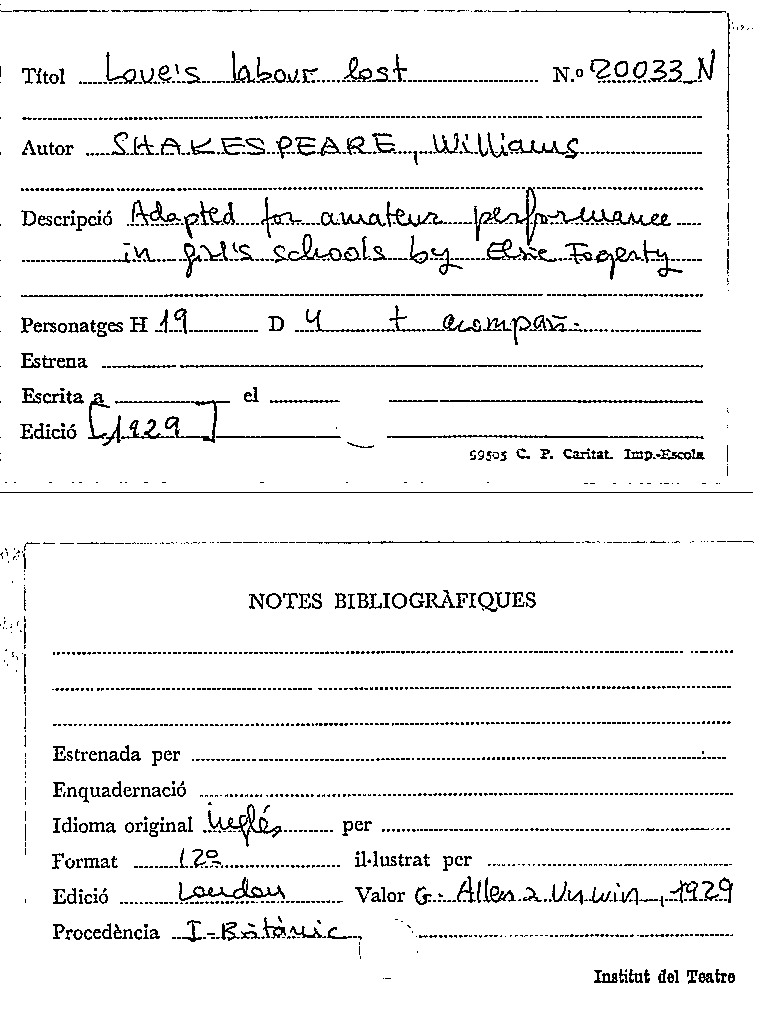 Títol Love's labour lost N.º 20033_N
Autor SHAKESPEARE, William
Descripció Adapted for amateur performance
in girl's schools by Elsie Fogerty
Personatges H 19 D 4 + acompañ.
Estrena
Escrita a el
Edició [1929]
99505 C. P. Caritat. Imp.-Escola
NOTES BIBLIOGRÀFIQUES
Estrenada per
Enquadernació
Idioma original inglés per
Format 12º il·lustrat per
Edició London Valor G. Allen & Unwin, 1929
Procedència I-Botànic
Institut del Teatre